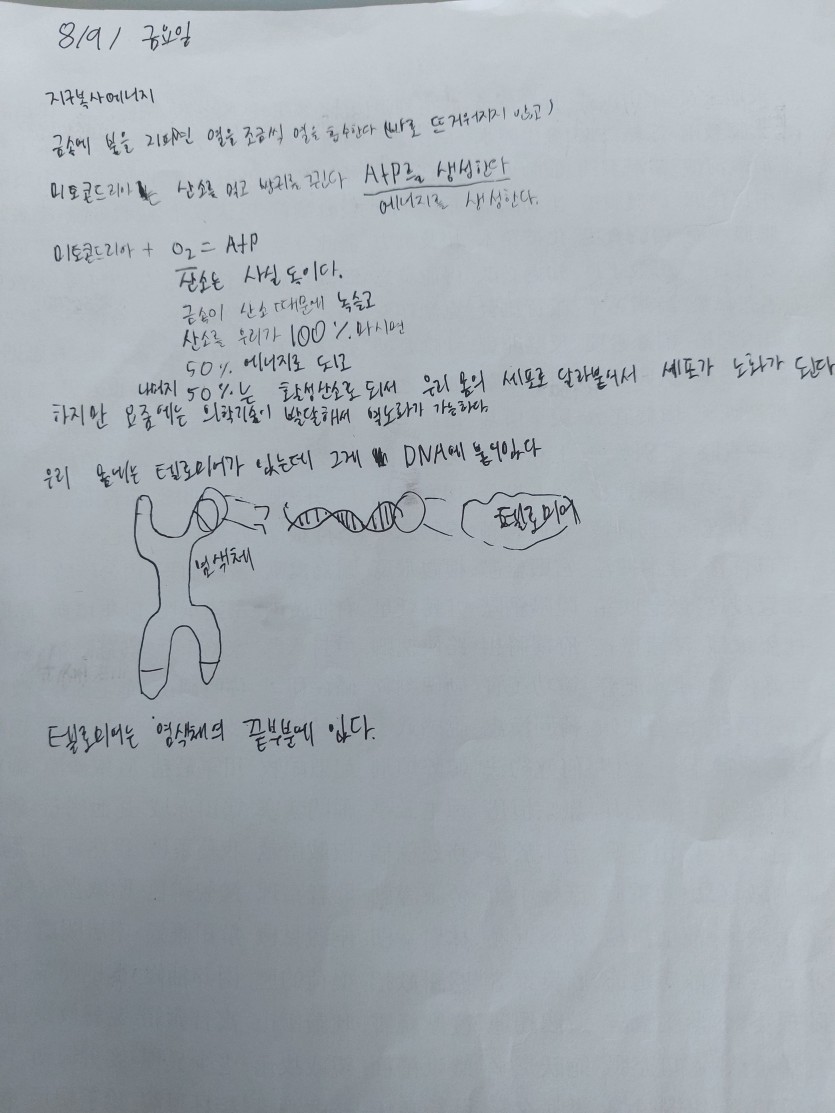 8/9/ 금요일
지구복사에너지
금속에 불을 지피면 열을 조금씩 열을 흡수한다 (바로 뜨거워지지 않고)
미토콘드리아는 산소를 먹고 방귀를 뀐다 AtP를 생성한다
에너지를 생성한다.
미토콘드리아 + O₂ = AtP
산소는 사실 독이다.
금속이 산소 때문에 녹슬고
산소를 우리가 100% 마시면
50% 에너지로 되고
나머지 50%는 활성산소로 되서 우리 몸의 세포로 달라붙어서 세포가 노화가 된다
하지만 요즘에는 의학기술이 발달해서 역노화가 가능하다.
우리 몸에는 텔로미어가 있는데 그게 DNA에 붙어있다
텔로미어
염색체
텔로미어는 염색체의 끝부분에 있다.